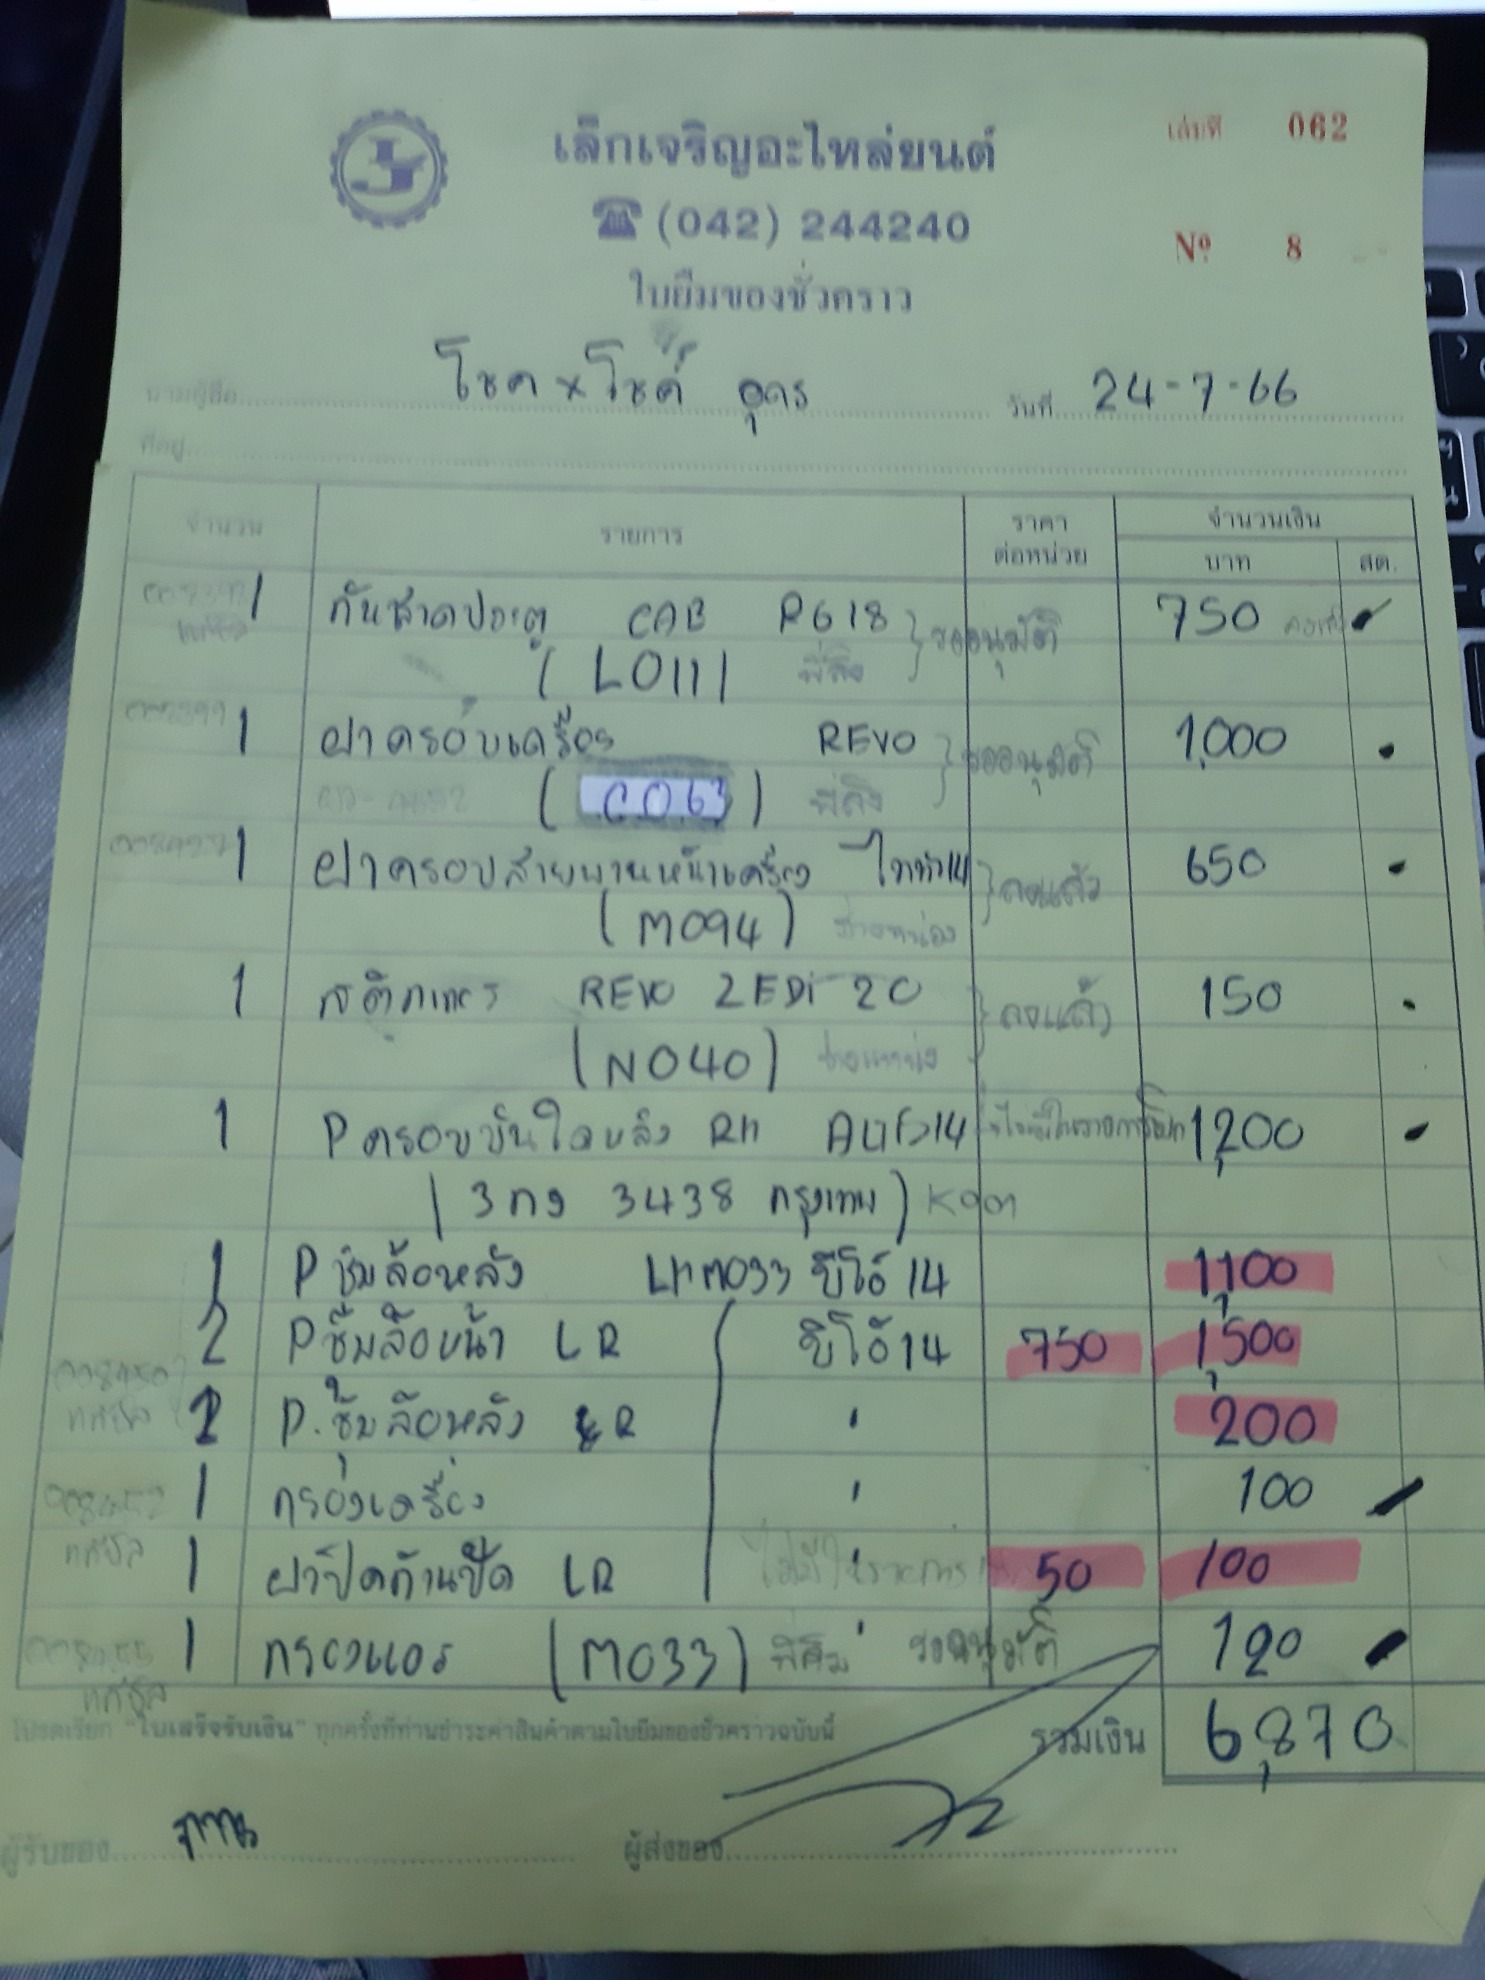 เล็กเจริญอะไหล่ยนต์
เล่มที่ 062
☎ (042) 244240
Nº 8
ใบยืมของชั่วคราว
นามผู้ซื้อ โชค x โชค์ อุดร วันที่ 24-7-66
ที่อยู่
จำนวน รายการ ราคาต่อหน่วย จำนวนเงิน
บาท สต.
1 กันสาดประตู CAB R618 รออนุมัติ 750
(L011)
1 ฝาครอบเครื่อง REVO รออนุมัติ 1,000
(C063)
1 ฝาครอบสายพานหน้าเครื่อง ไททัน14 ลงแล้ว 650
(M094)
1 สติกเกอร์ REVO ZEDi 20 ลงแล้ว 150
(N040)
1 P ครอบบันไดหลัง RH 14 1,200
(3กง 3438 กรุงเทพ)
1 P ซุ้มล้อหลัง LH M033 วีโก้ 14 1,100
2 P ซุ้มล้อหน้า LR วีโก้ 14 750 1,500
P. ซุ้มล้อหลัง R " 200
1 กรองเครื่อง " 100
1 ฝาปิดก้านปัด LR " 50 100
1 กรองแอร์ (M033) " รออนุมัติ 120
โปรดเรียก "ใบเสร็จรับเงิน" ทุกครั้งที่ท่านชำระค่าสินค้าตามใบยืมของชั่วคราวฉบับนี้ รวมเงิน 6,870
ผู้รับของ ผู้ส่งของ